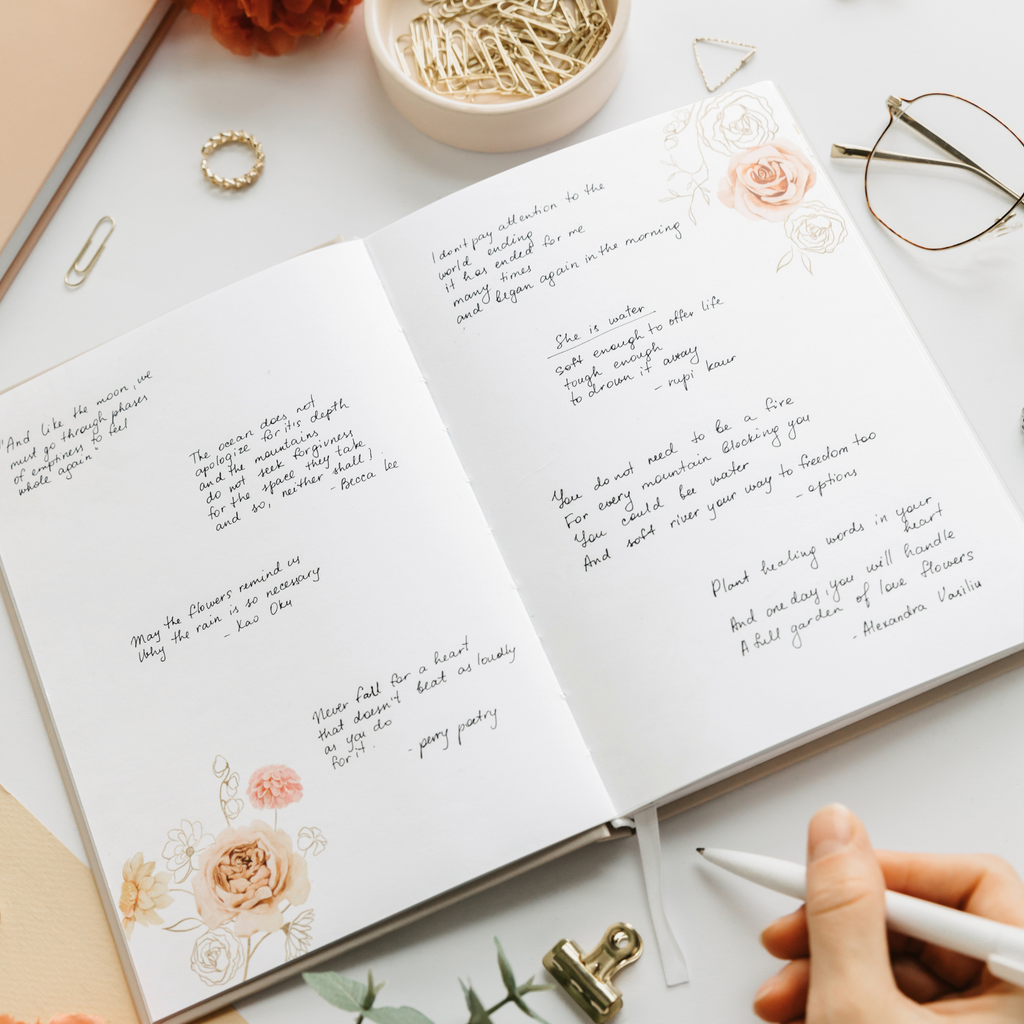 "And like the moon, we
must go through phases
of emptiness to feel
whole again"
The ocean does not
apologize for it's depth
and the mountains
do not seek forgivness
for the space they take
and so, neither shall I.
- Becca Lee
May the flowers remind us
Why the rain is so necessary
- Xao Oku
Never fall for a heart
that doesn't beat as loudly
as you do
for it.
- perry poetry
I don't pay attention to the
world ending
it has ended for me
many times
and began again in the morning
She is water
soft enough to offer life
tough enough
to drown it away
- rupi kaur
You do not need to be a fire
For every mountain blocking you
You could be water
And soft river your way to freedom too
- options
Plant healing words in your
heart
And one day, you will handle
A full garden of love flowers
- Alexandra Vasiliu